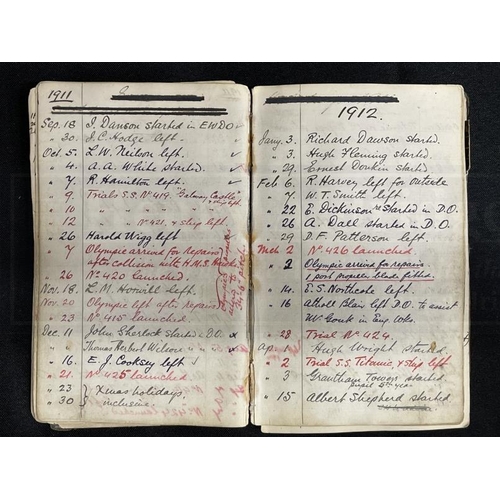 1911.
Sep. 18 J. Danson started in EWDO ✓
" 30 J. C. Hodge left. ✓
Oct. 5 L. W. Neilson left. ✓
" 4 A. A. White started. ✓
" 7 R. Hamilton left. ✓
" 9 Trials S.S. No 419. "Galway Castle"
" 10 " "
" 12 " No 421. & ship left.
" 26 Harold Wigg left
" 7 Olympic arrived for repairs
after collision with H.M.S. Hawke
" 26 No 420 launched.
Nov. 18. L. M. Howill left.
Nov. 20 Olympic left after repairs
" 23 No 415 launched.
Dec. 11 John Sherlock started D.O.
" Thomas Herbert Wilson "
" 16. E. J. Cooksey left
" 21. No 425 launched.
" 23 } Xmas holidays
" 30 } inclusive.
1912.
Jany. 3. Richard Dawson started.
" 3 Hugh Fleming started.
" 29. Ernest Donkin started.
Feb 6 R. Harvey left for outside
" 7 W. T. Smith left.
" 22 E. Dickinson started in D.O.
" 26 A. Dall started in D.O.
" 29 D. F. Patterson left.
Mch 2 No 426 launched.
" 2 Olympic arrived for repairs
1 port propeller blade fitted.
" 14. S. S. Northcote left.
" 16 Atholl Blair left D.O. to assist
Mr Gouk in Eng. Wks.
" 23 Trial No 424.
Ap. 1 Hugh Wright started.
" 2 Trial S.S. Titanic, & ship left
" 3 Grantham Towers started
pupil 5th year
" 15 Albert Shepherd started.